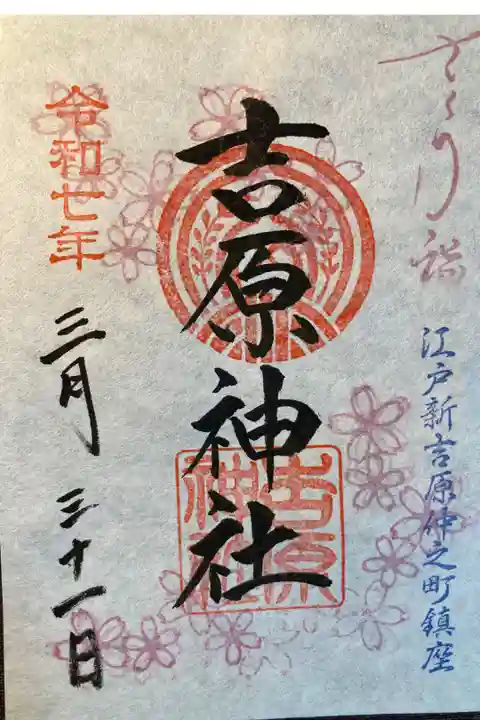 さくら詣
江戸新吉原仲之町鎮座
吉原神社
吉原
神社
令和七年
三月三十一日